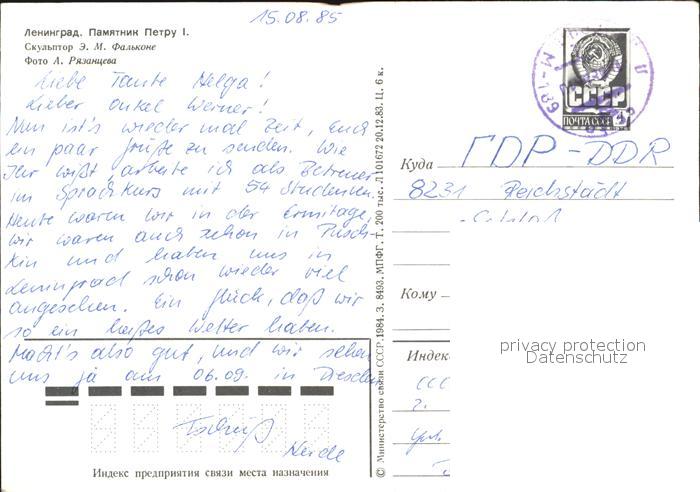 15.08.85
Ленинград. Памятник Петру I.
Скульптор Э. М. Фальконе
Фото Л. Рязанцева
Liebe Tante Helga!
Lieber Onkel Werner!
Nun ist's wieder mal Zeit, Euch
ein paar Grüße zu senden. Wie
Ihr wißt, arbeite ich als Betreuer
im Sprachkurs mit 54 Studenten.
Heute waren wir in der Ermitage,
wir waren auch schon in Pusch-
kin und haben uns in
Leningrad schon wieder viel
angesehen. Ein Glück, daß wir
so ein heißes Wetter haben.
Macht's also gut, und wir sehen
uns ja am 06.09. in Dresden
Tschüß
Индекс предприятия связи места назначения
© Министерство связи СССР. 1984. З. 8493. МПФГ. Т. 200 тыс. Л 101672 20.12.83. Ц. 6 к.
СССР
ПОЧТА СССР 4
Куда ГДР-DDR
8231 Reichstädt
Кому
Индекс
privacy protection
Datenschutz